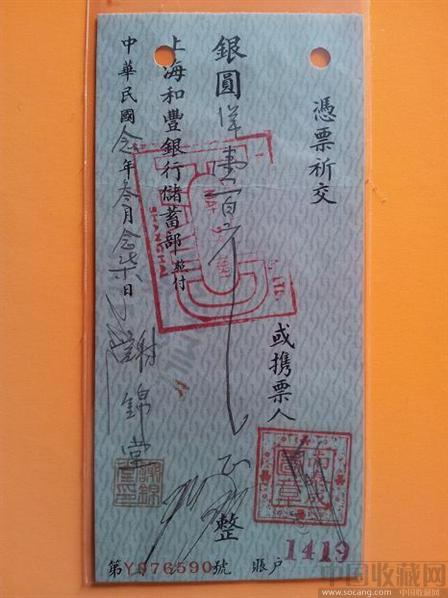 憑票祈交
或携票人
銀圓洋壹百
整
上海和豐銀行儲蓄部 照付
中華民國念年叁月念柒日
謝錦堂
謝錦堂印
第Y076590號 賬户 1419
中国收藏网
www.socang.com 中国收藏网